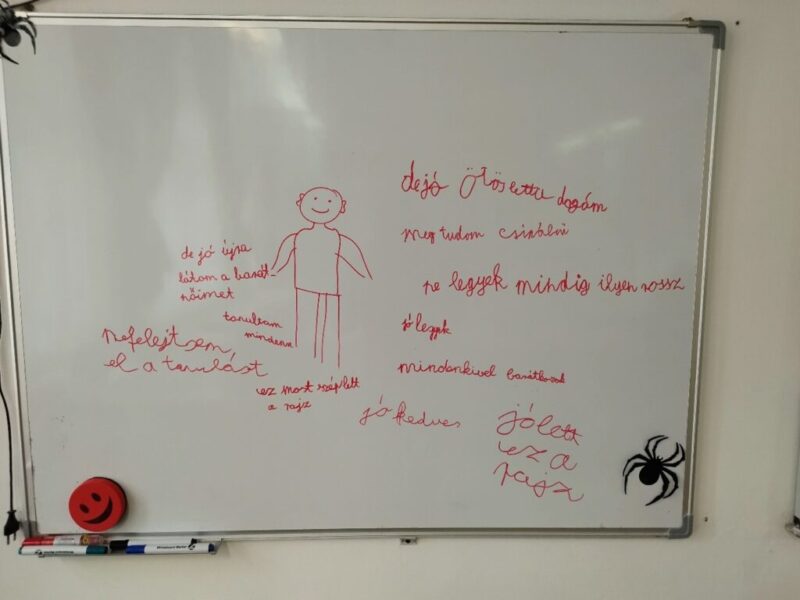 de jó újra
látom a barát-
nőimet
tanultam
mindent
nefelejtsem
el a tanulást
ez most szép lett
a rajz
dejó ötös lett a dogám
meg tudom csinálni
ne legyek mindig ilyen rossz
jó legyek
mindenkivel barátkozok
jó kedves
jó lett
ez a
rajz